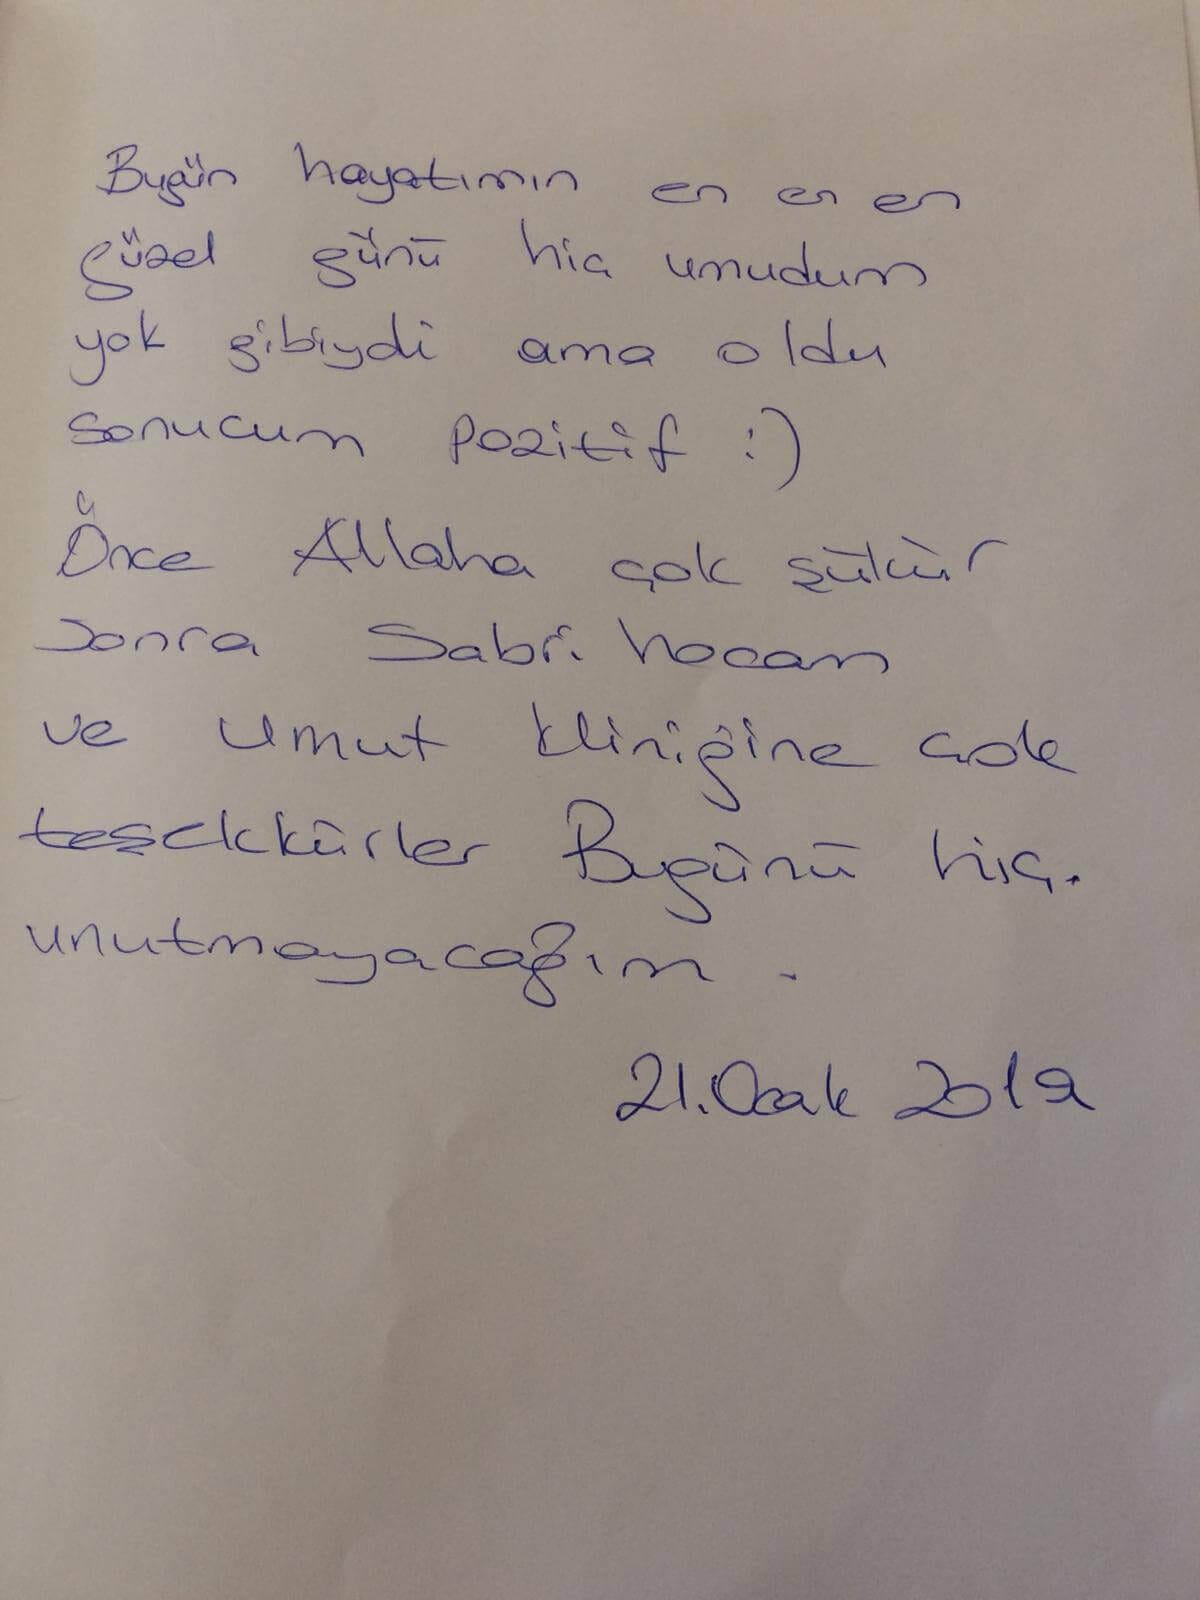 Bugün hayatımın en en en
güzel günü hiç umudum
yok gibiydi ama oldu
sonucum pozitif :)
Önce Allaha çok şükür
sonra Sabri hocam
ve Umut kliniğine çok
teşekkürler Bugünü hiç.
unutmayacağım.
21.Ocak 2019